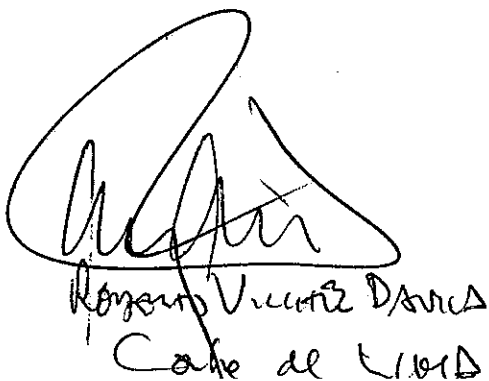 Roberto Vilchez Davila
Cabe de Lima